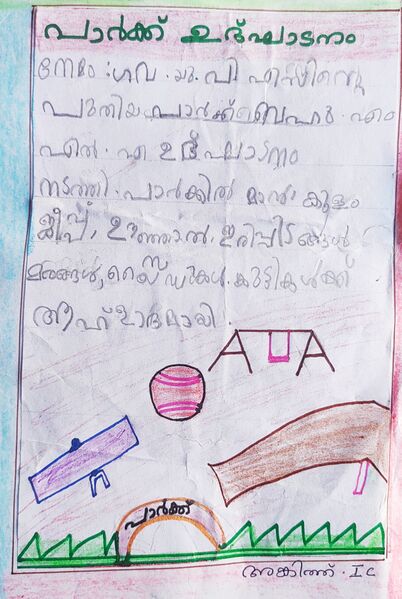 പാർക്ക് ഉദ്ഘാടനം
നേമം ഗവ. യു.പി എസിന്റെ
പുതിയ പാർക്ക് ബഹു. എം
എൽ. എ ഉദ്ഘാടനം
നടത്തി. പാർക്കിൽ മാൻ, കുളം
ജീപ്പ്, ഊഞ്ഞാൽ, ഇരിപ്പിടങ്ങൾ
മരങ്ങൾ, സ്ലൈഡുകൾ. കുട്ടികൾക്ക്
ആഹ്ലാദമായി.
പാർക്ക്
അങ്കിത്ത്. I C